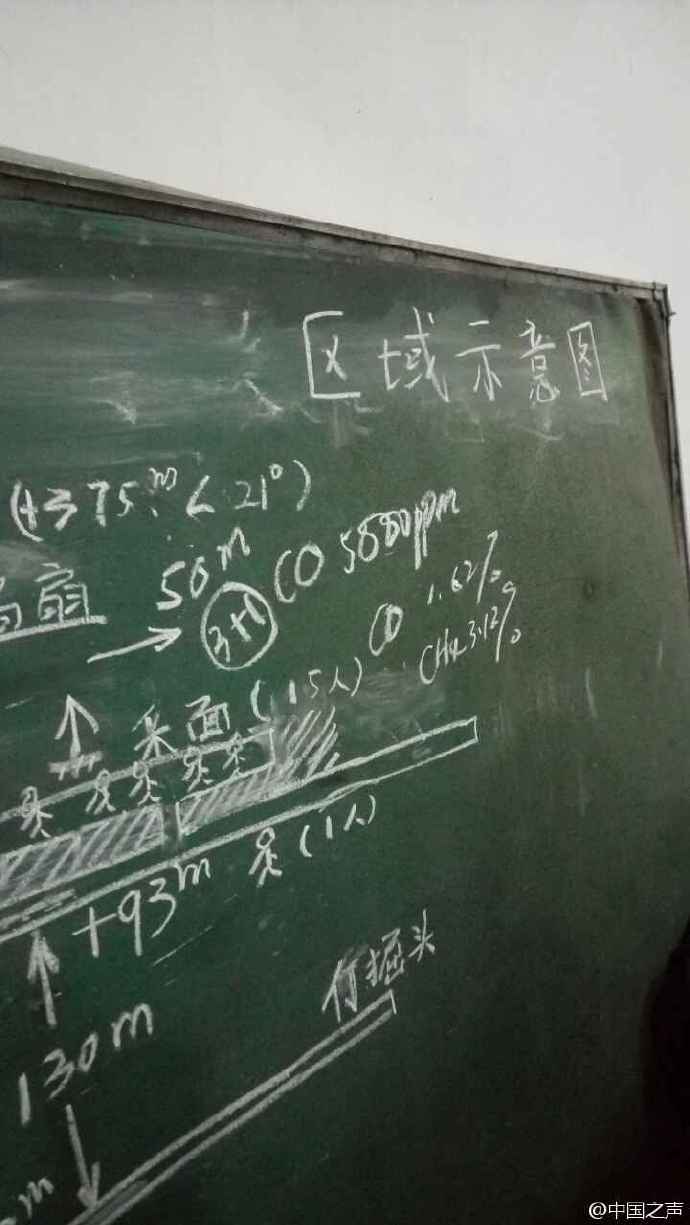 区域示意图
(+375m <21°)
扇
50m
3+1
CO 5880ppm
CO 1.62%
CH4 3.12%
采面(15人)
+93m
(1人)
掘头
130m
m
@中国之声